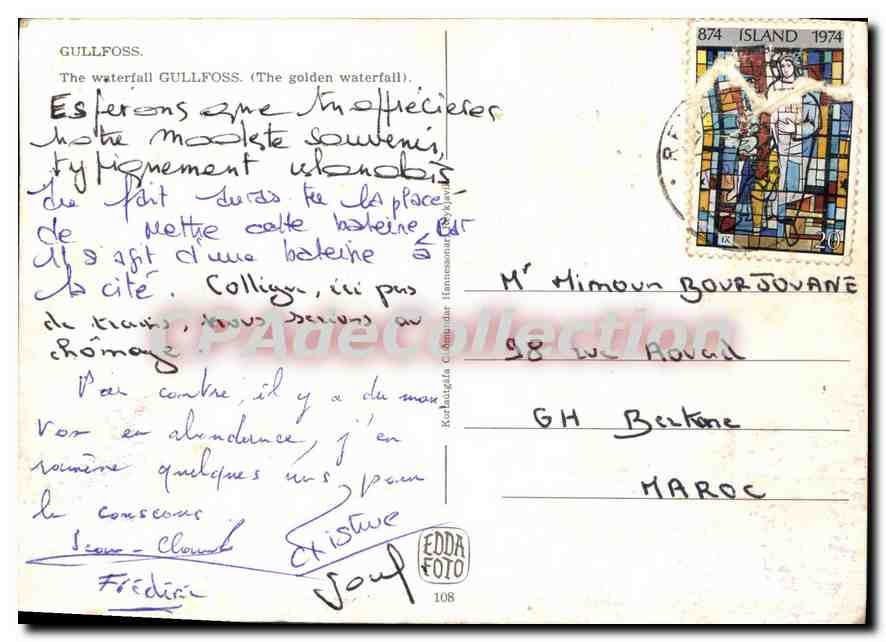 GULLFOSS.
The waterfall GULLFOSS. (The golden waterfall).
Espérons que tu apprécieras
notre modeste souvenir,
typiquement islandais
du fait auras tu la place
de mettre cette bateine car
il s'agit d'une bateine à
la cité. Collègue, ici pas
de trains, nous serions au
chômage !
Par contre, il y a du mou
ton en abondance, j'en
ramène quelques uns pour
le couscous.
Jean-Claude
Frédéric
EDDA
FOTO
108
Kortaútgáfa Guðmundar Hannessonar Reykjavík
874 ÍSLAND 1974
IX
20
Mr Mimoun BOURJOUANE
98 rue
GH
MAROC
CPAdeCollection